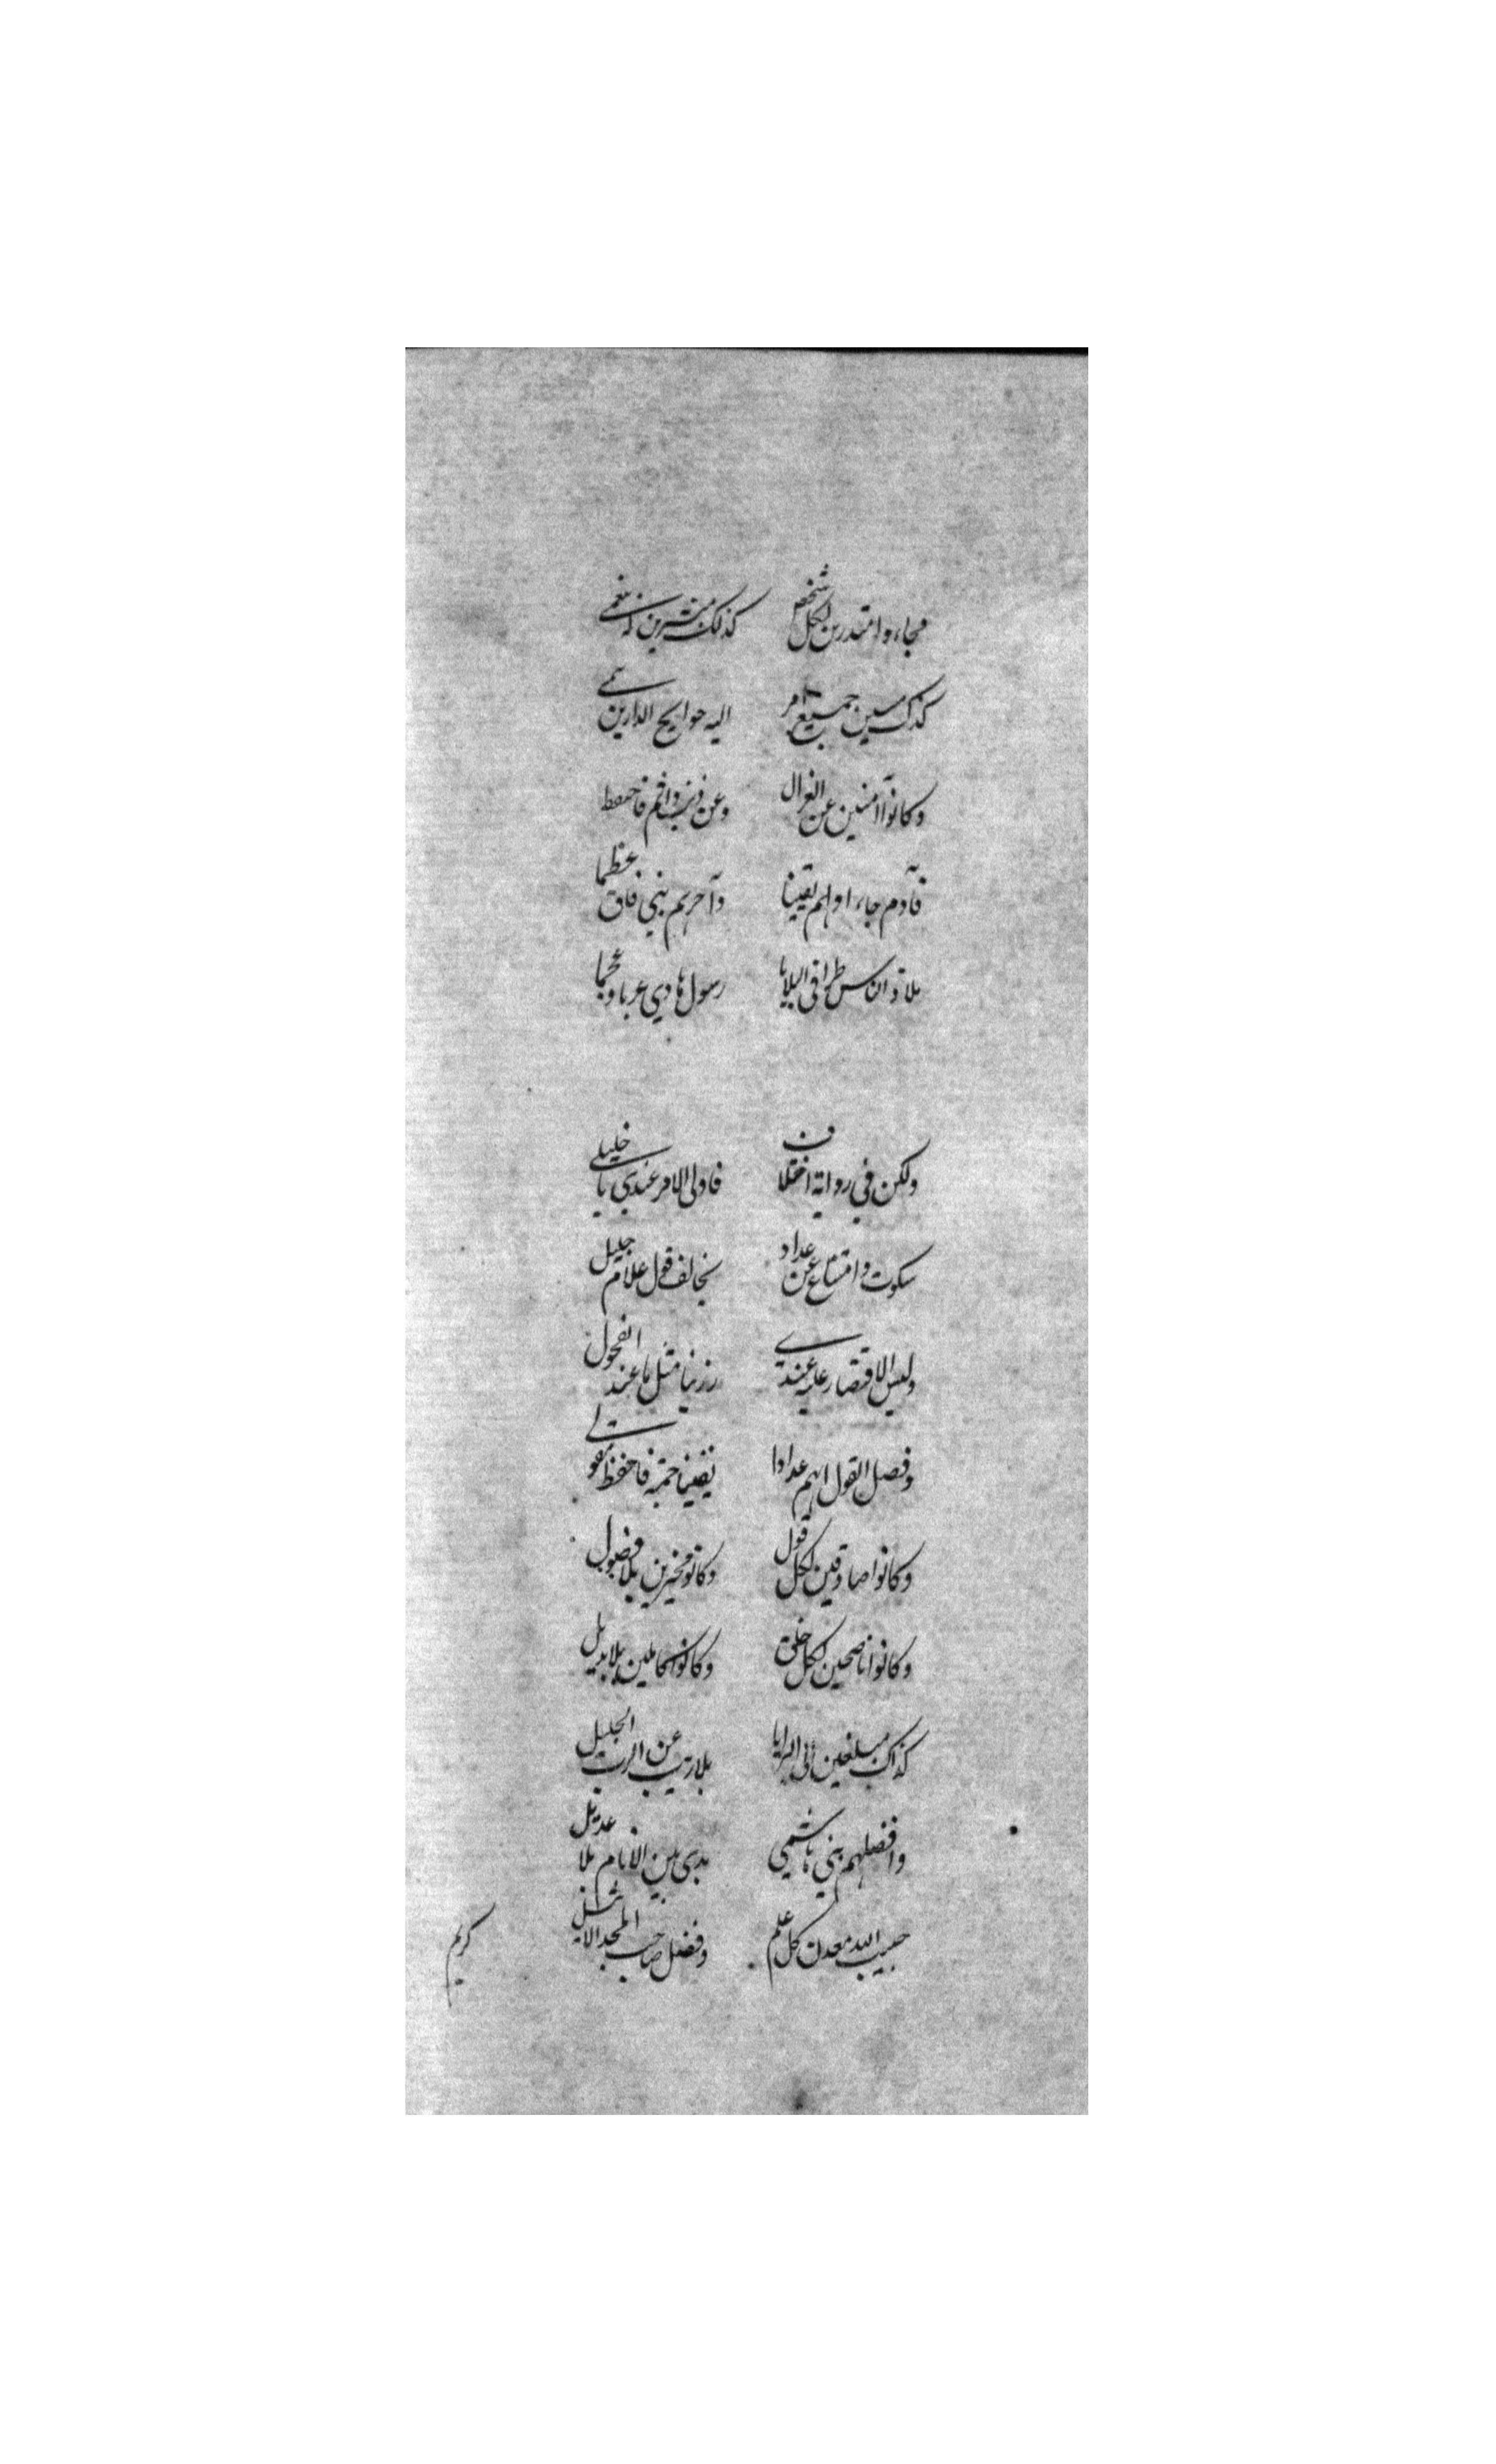 فجاءوا منذرين لكل شخص كذلك مبشرين نعمى
كذاك مبين جميع امر اليه حوايج الدارين
وكانوا آمنين عن العزال وعن ذنب فاحفظ
فآدم جاء اولهم يقينا وآخرهم نبي فاق عظما
ملاذ الناس طرا في البلايا رسول هادي عربا وعجما
ولكن في رواية اختلاف فاولى الامر عندي يا خليلي
سكوت وامتناع عن عداد يخالف قول علام جليل
وليس الاقتصار عليه عندي رزينا مثل ما عند الفحول
وفصل القول انهم عدادا يقينا ختمه فاحفظ مقولي
وكانوا صادقين لكل قول وكانو مخبرين بلا فضول
وكانوا ناصحين لكل خلق وكانوا كاملين بلا بديل
كذاك مبلغين الى البرايا بلا ريب عن الرب الجليل
وافضلهم نبي هاشمي بدى بين الانام بلا عديل
حبيب الله معدن كل علم وفضل صاحب المجد الاثيل
كريم